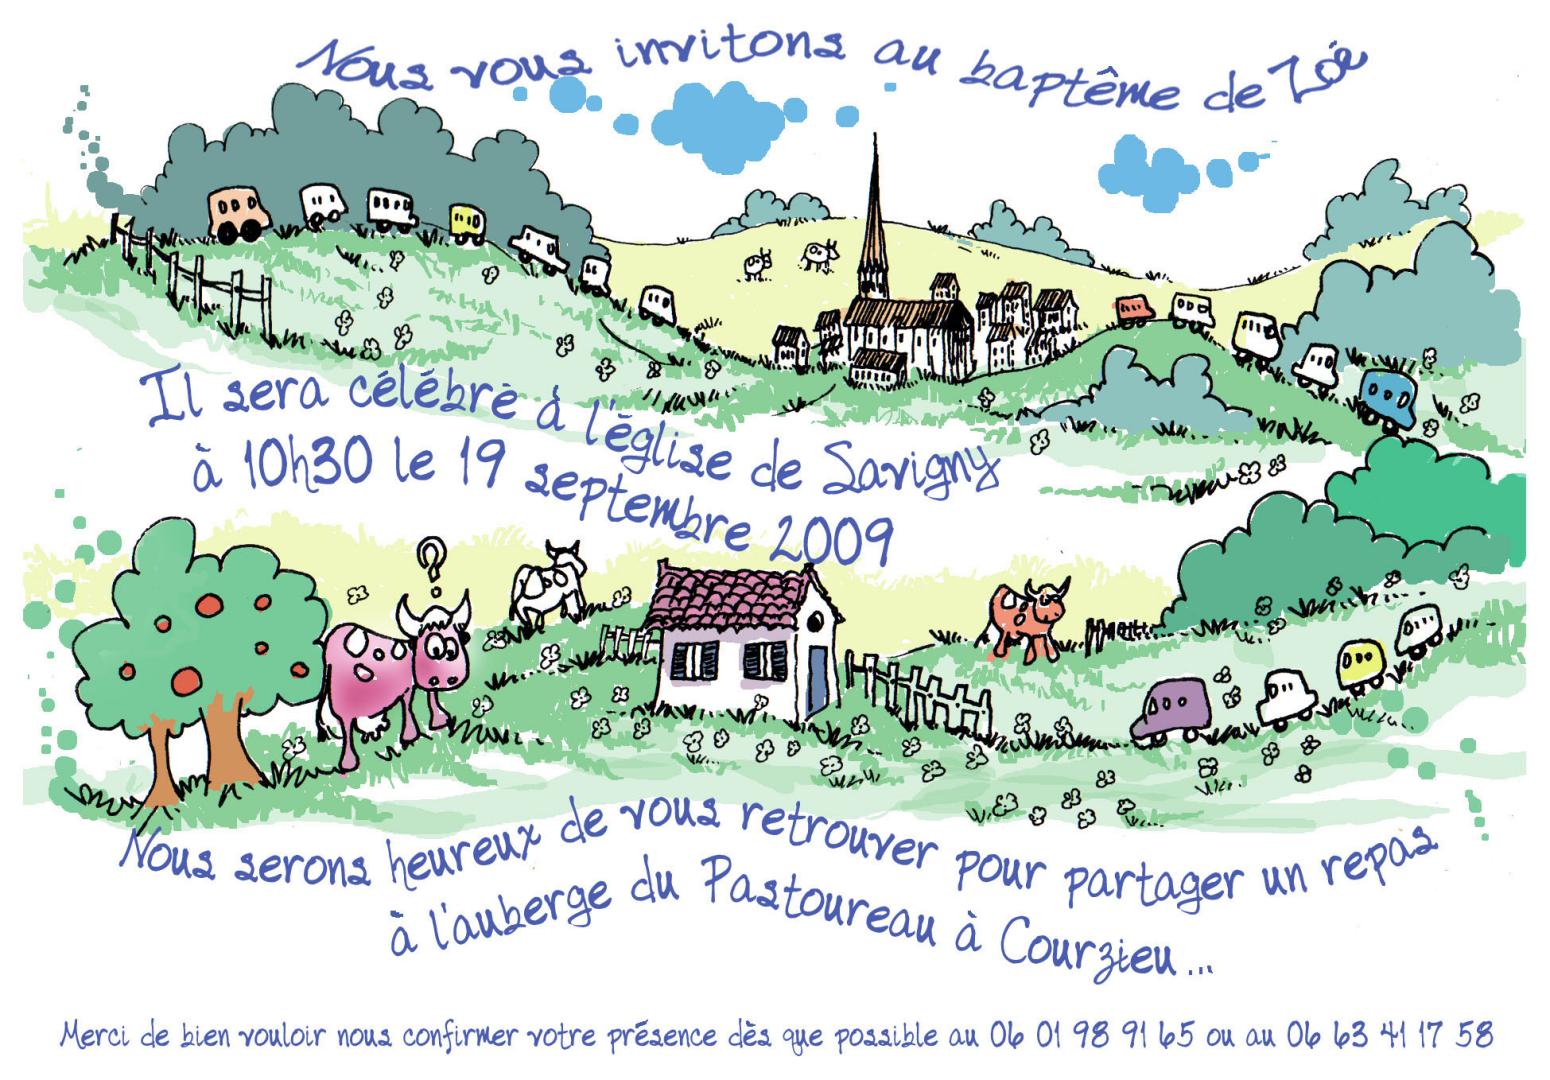 Nous vous invitons au baptême de Zoé
Il sera célébré à l'église de Savigny
à 10h30 le 19 septembre 2009
?
Nous serons heureux de vous retrouver pour partager un repas
à l'auberge du Pastoureau à Courzieu...
Merci de bien vouloir nous confirmer votre présence dès que possible au 06 01 98 91 65 ou au 06 63 41 17 58